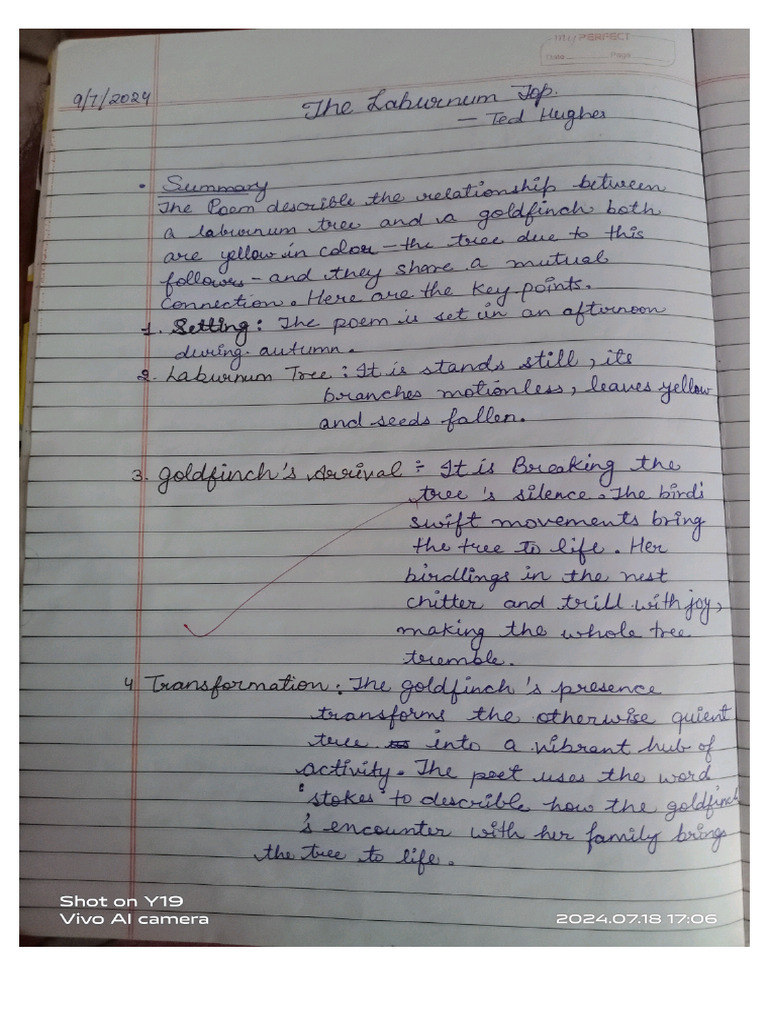 My PERFECT
Date Page
9/7/2024
The Laburnum Top.
- Ted Hughes
• Summary
The Poem describle the relationship between
a laburnum tree and a goldfinch both
are yellow in color - the tree due to this
follows - and they share a mutual
Connection. Here are the key points.
1. Setting: The poem is set in an afternoon
during autumn.
2. Laburnum Tree: It is stands still, its
branches motionless, leaves yellow
and seeds fallen.
3. goldfinch's Arrival : It is Breaking the
tree's silence. The birds
swift movements bring
the tree to life. Her
birdlings in the nest
chitter and trill with joy,
making the whole tree
tremble.
4 Transformation: The goldfinch's presence
transforms the otherwise quient
tree into a vibrant hub of
activity. The poet uses the word
'stokes' to describle how the goldfinch
's encounter with her family brings
the tree to life.
Shot on Y19
Vivo AI camera
2024.07.18 17:06